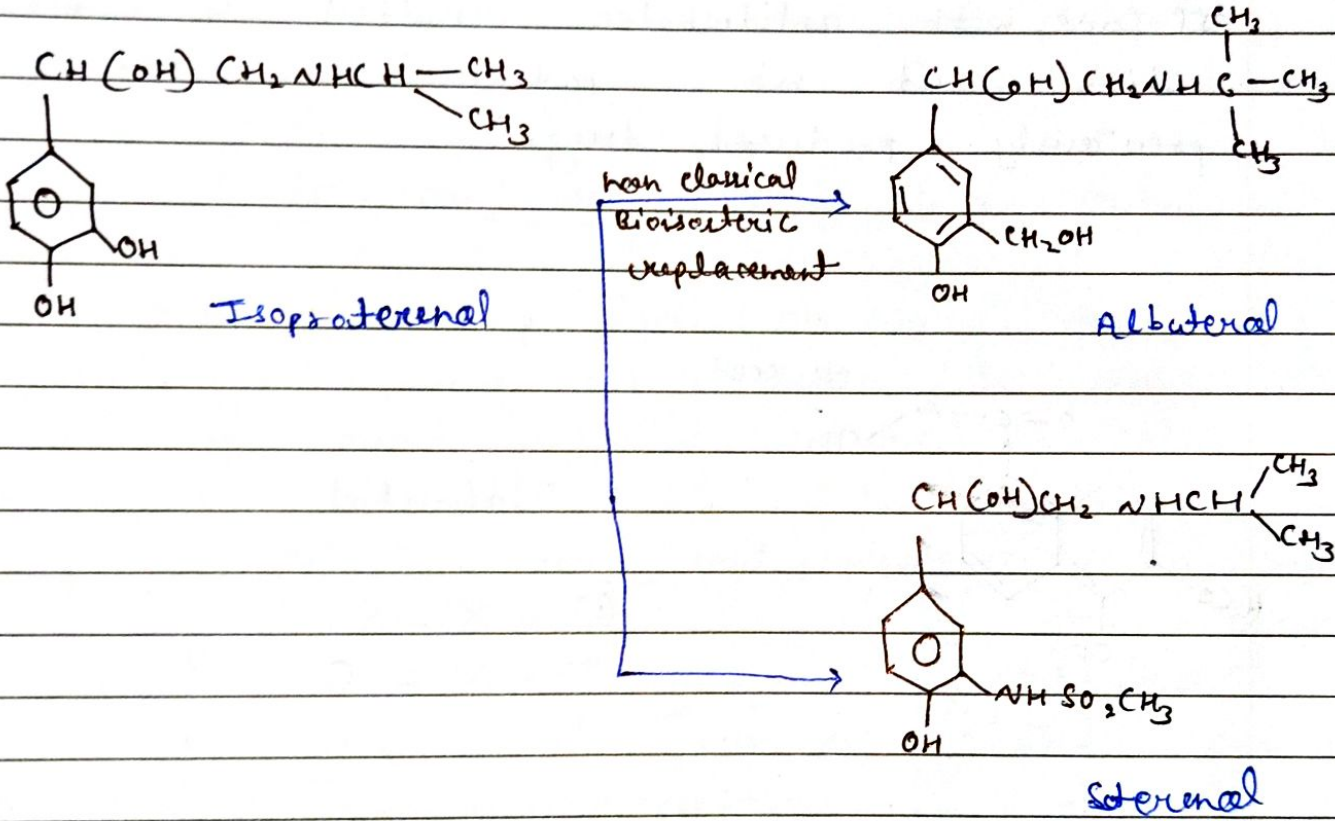 CH(OH) CH₂NHCH—CH₃
CH₃
OH
OH
Isoproterenol
non classical
Bioisosteric
replacement
CH₃
CH(OH) CH₂NH C—CH₃
CH₃
CH₂OH
OH
Albuterol
CH(OH)CH₂ NHCH
CH₃
CH₃
NH SO₂CH₃
OH
Soterenol